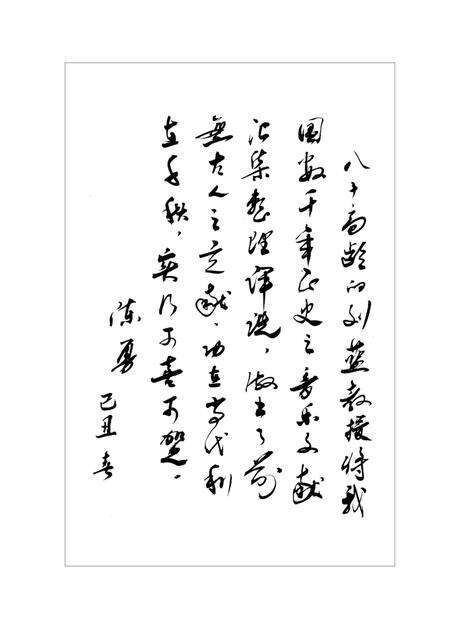 八十高龄的刘蓝教授将我
国数千年正史之音乐文献
汇集整理译注，做出了前
无古人之贡献，功在当代利
在千秋，实乃可喜可贺。
陈勇
己丑春